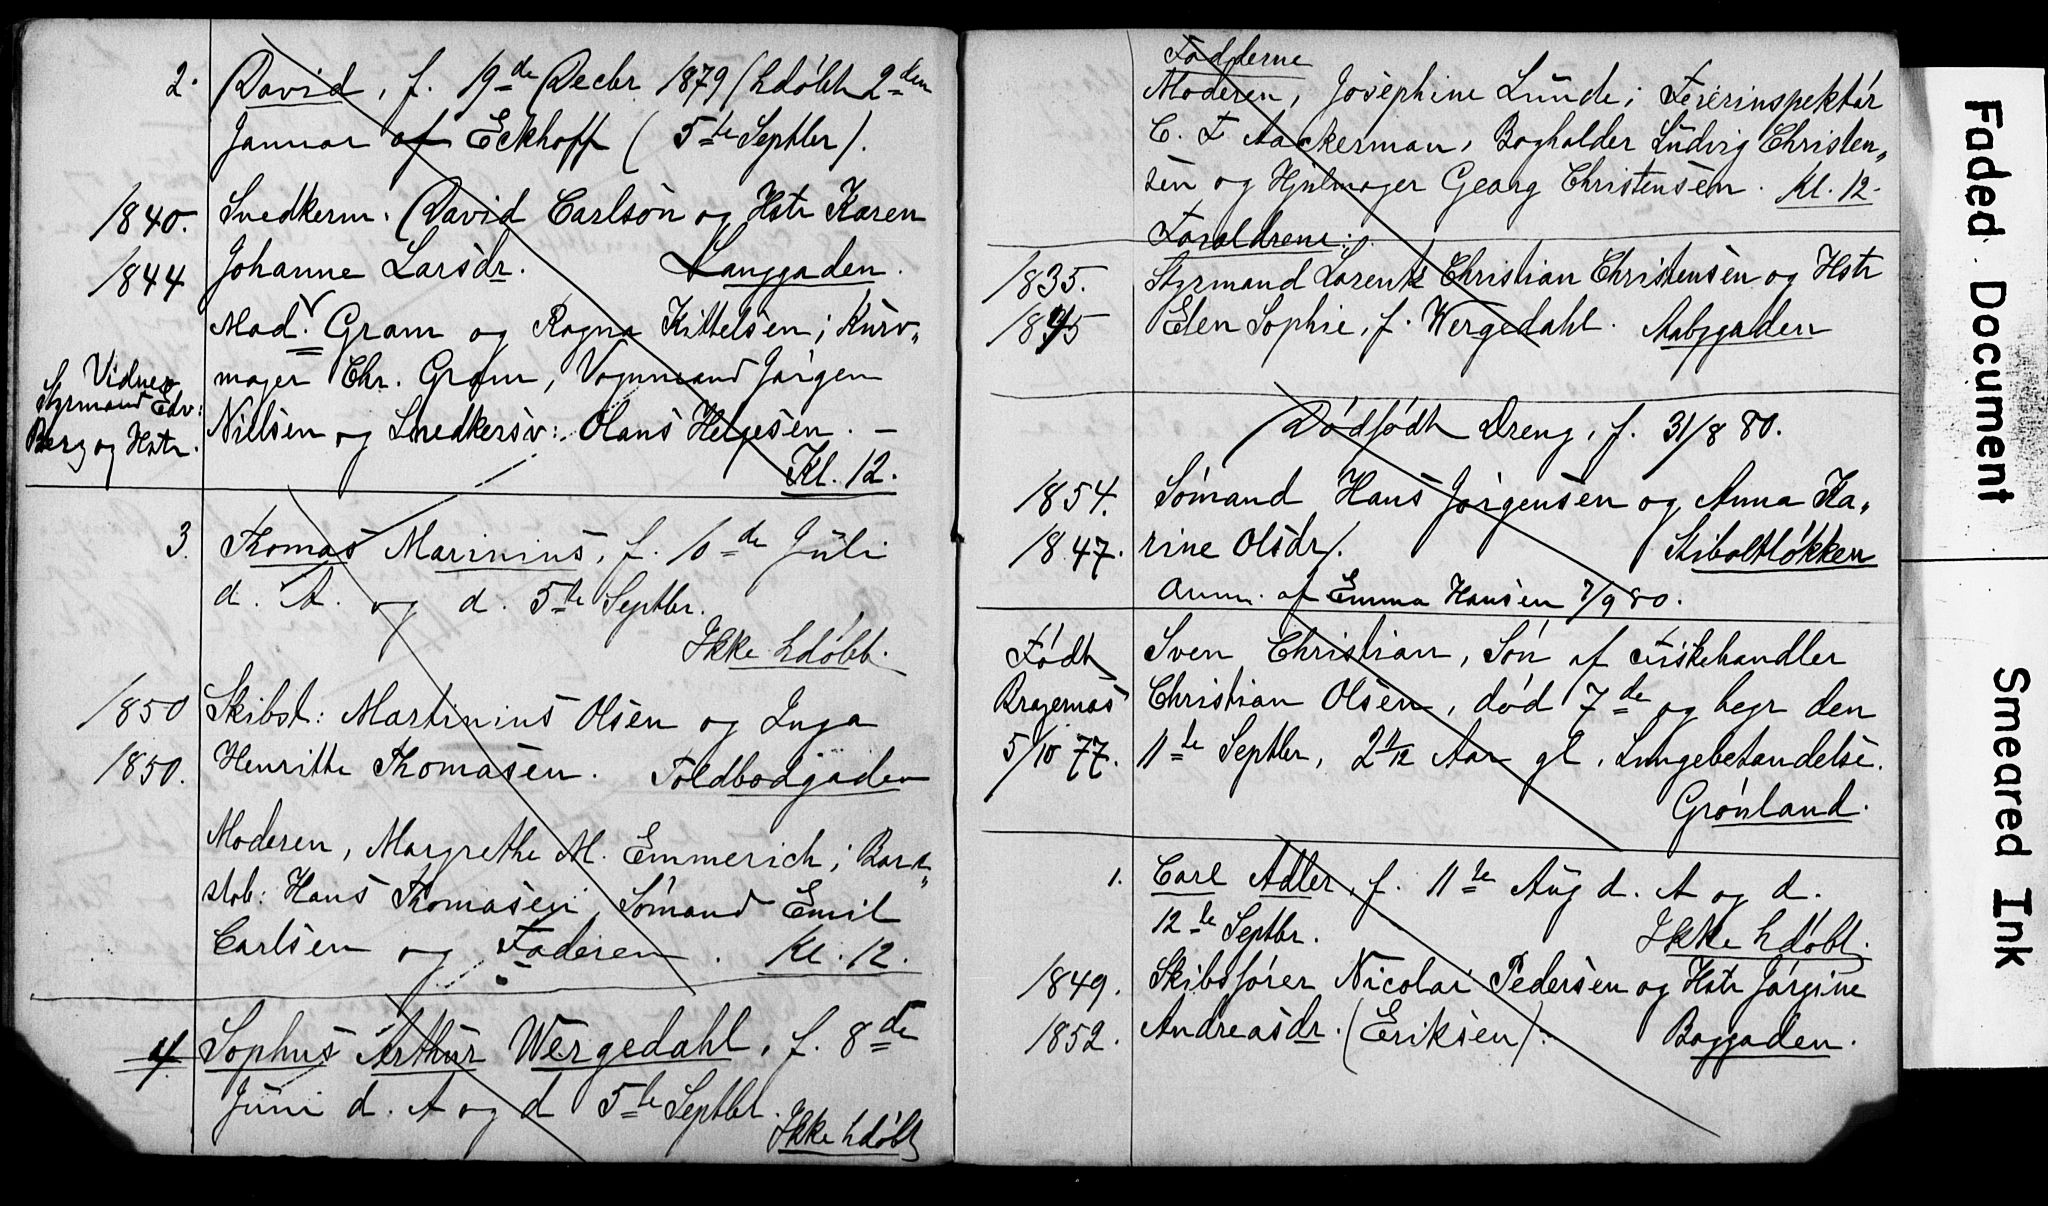 2. David, f. 19de Decbr 1879 (hdøbt 2den
Januar af Eckhoff (5te Septbr).
1840. Snedkerm. David Carlsen og Hstr Karen
1844 Johanne Larsdr. Langgaden.
Mad. Gram og Ragna Kittelsen; Kurv„
mager Chr. Gram, Vognmand Jørgen
Nielsen og Snedkersv: Olaus Helgesen. —
Kl. 12.
Vidner
Styrmand Edv:
Berg og Hstr.
3. Thomas Marinius, f. 10de Juli
d. A. og d. 5te Septbr.
Ikke hdøbt.
1850 Skibst: Martinius Olsen og Inga
1850. Henritte Thomasen. Toldbodgaden
Moderen, Margrethe M. Emmerich;
Hans Thomasen, Sømand Emil
Carlsen og Faderen. Kl. 12.
4. Sophus Arthur Wergedahl, f. 8de
Juni d. A og d 5te Septbr.
Ikke hdøbt
Fadderne
Moderen, Josephine Lunde; Feierinspektør
C. F Aackerman, Bogholder Ludvig Christen„
sen og Hjulmager Georg Christensen. Kl. 12.
Forældrene:
1835. Styrmand Lorentz Christian Christensen og Hstr
1845 Elen Sophie, f. Wergedahl. Aabygaden
Dødfødt Dreng, f. 31/8 80.
1854. Sømand Hans Jørgensen og Anna Ka„
1847. rine Olsdr. Stiboltløkken
Anm. af Emma Hansen 7/9 80.
Født
Bragernæs
5/10 77.
Sven Christian, Søn af Fiskehandler
Christian Olsen, død 7de og begr den
11te Septbr, 2 11/12 Aar gl. Lungebetændelse.
Grønland.
1. Carl Adler, f. 11te Aug d. A og d.
12te Septbr. Ikke hdøbt.
1849. Skibsfører Nicolai Pedersen og Hstr Jørgine
1852. Andreasdr. (Eriksen). Baggaden.
Faded Document
Smeared Ink